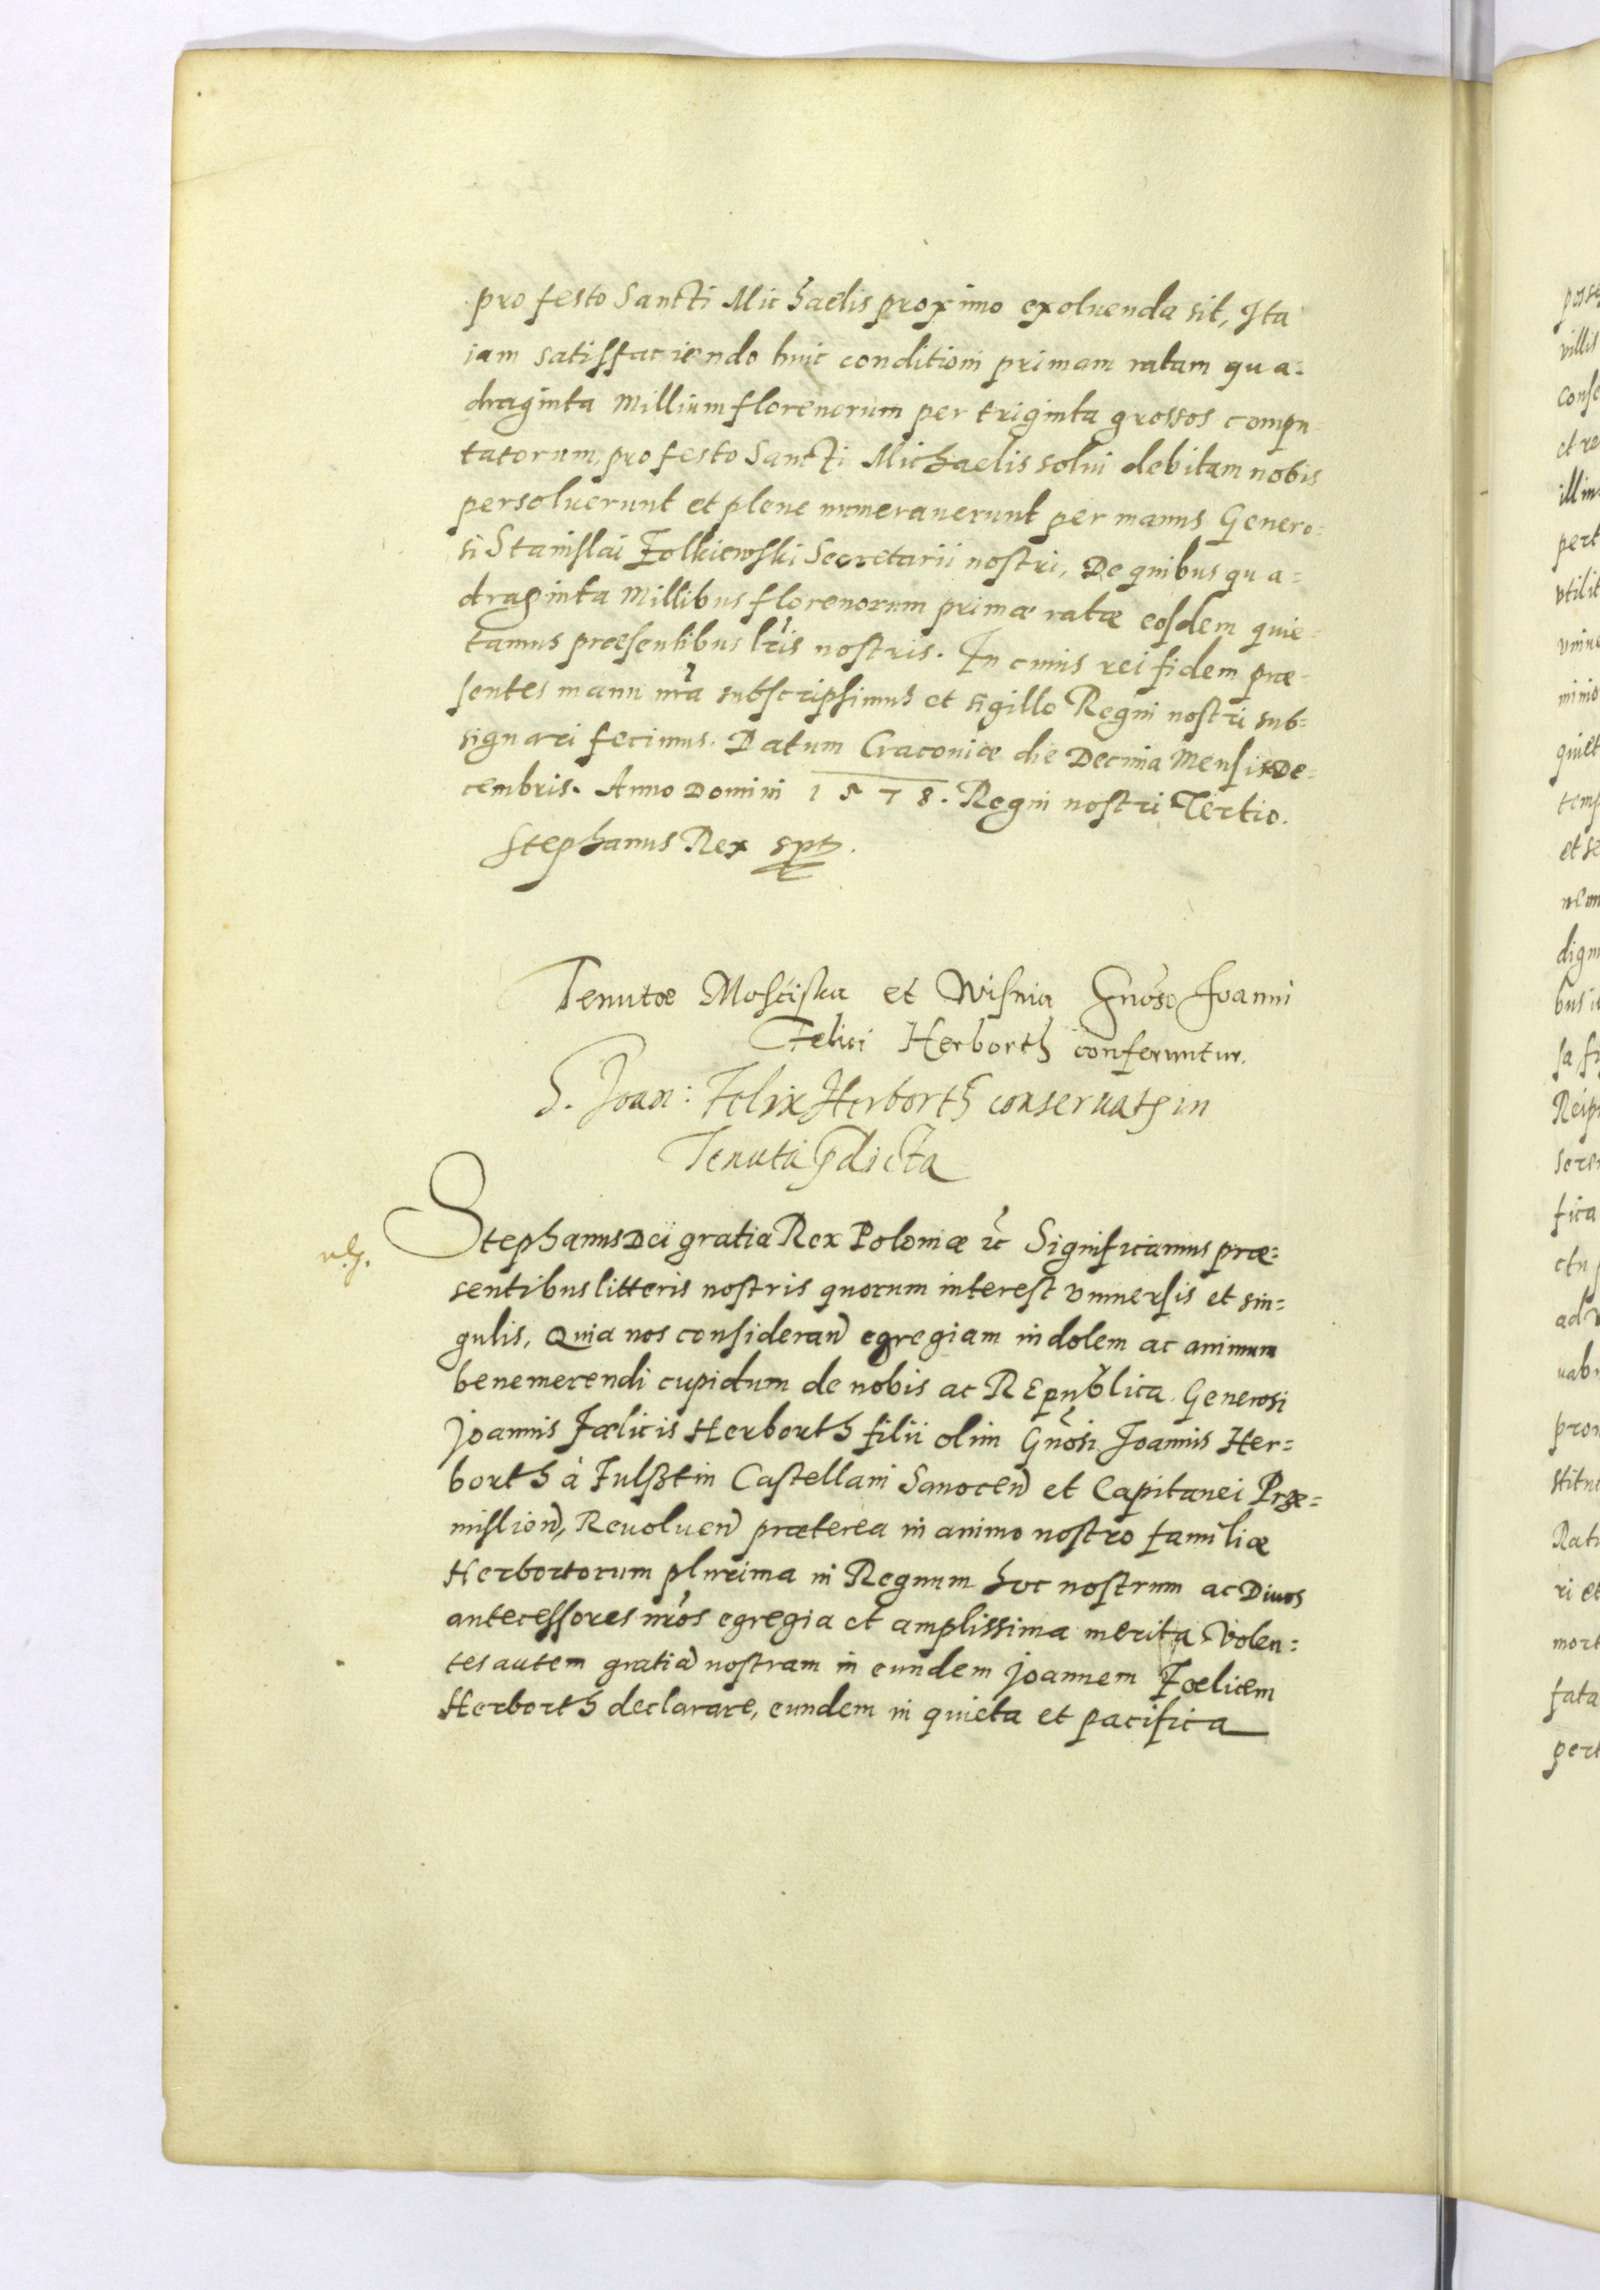 pro festo Sancti Michaelis proximo exoluenda sit, Ita
iam satisfaciendo huic conditioni primam ratam qua=
draginta Millium florenorum per triginta grossos compu
tatorum, pro festo Sancti Michaelis solui debitam nobis
persoluerunt et plene numerauerunt per manus Genero=
si Stanislai Zolkiewski Secretarii nostri, De quibus qua=
draginta Millibus florenorum primæ ratæ eosdem quie=
tamus præsentibus lris nostris. In cuius rei fidem præ=
sentes manu nra subscripsimus et sigillo Regni nostri sub=
signari fecimus. Datum Cracouiæ die Decima Mensis De=
cembris. Anno Domini 1578. Regni nostri Tertio.
Stephanus Rex spt.
Tenutæ Mosciska et Wisnia Gnoso Joanni
Felici Herborth conferuntur.
G. Joan: Felix Herborth conseruatr in
Tenuta pdicta
Stephanus Dei gratia Rex Poloniæ etc Significamus præ=
sentibus litteris nostris quorum interest vniuersis et sin=
gulis, Quia nos consideran egregiam indolem ac animum
benemerendi cupidum de nobis ac REpublica Generosi
Joannis Fœlicis Herborth filii olim Gnosi Joannis Her=
borth à Fulßtin Castellani Sanocen et Capitanei Præ=
mislien, Reuoluen præterea in animo nostro familiæ
Herbortorum plurima in Regnum hoc nostrum ac Diuos
antecessores nros egregia et amplissima merita Volen=
tes autem gratia nostram in eundem Joannem Fœlicem
Herborth declarare, eundem in quieta et pacifica